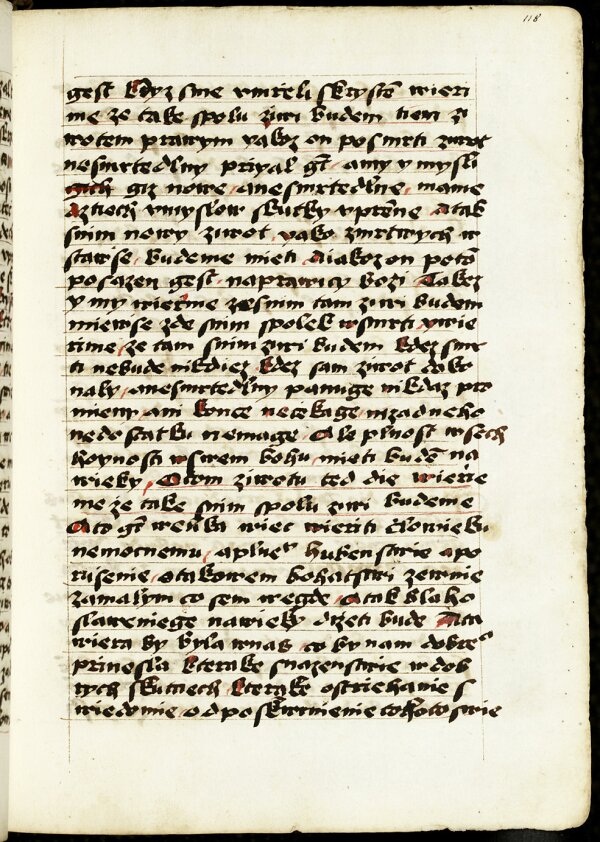 118
gest kdyz sme vmrteli skrystē wieri
me ze take spolu ziwi budem tiem zi
wotem prawym yakoz on posmrti ziwot
nesmrtedlny priyal gt amy y mysli
giz nowe anesmrtedlne mame
aztiech vmyslow skutky vprene atak
snim nowy ziwot yako zmrtwych w
stawse budeme mieti Aiakoz on potō
posazen gest naprawicy bozi Takez
y my wierme zesnim tam ziwi budem
miewse zde snim spolek wsmrti ywie
rime ze tam snim ziwi budem kdez smr
ti nebude nikdiez kdez sam ziwot doko
naly anesmrtedlny panuge nikdaz pro
mieny ani konce necekage nizadneho
nedostatku nemage Ale plnost wsech
hoynosti wswem bohu mieti budē na
wieky Otom ziwotu ted die wierie
me ze take snim spolu ziwi budeme
Ato gt welika wiec wieriti clowieku
nemocnemu aplne hubenstwie apo
rusenie otakowem bohatstwi zewnie
zamalym co sem wegde Atak blaho
slaweniege nawieky drzeti bude Ata
wiera by byla wnas co by nam dobre°
prinesla kterake snazenstwie wdob
rych skutciech kterake ostriehanie s
wiedomie odposkwrnienie tohoto swie